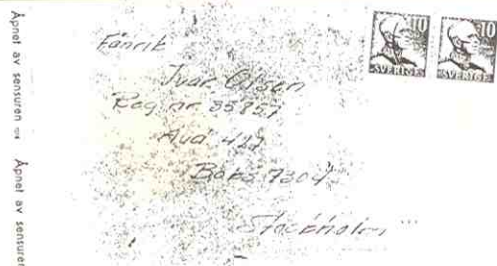 Åpnet av sensuren Åpnet av sensuren
10 10
SVERIGE SVERIGE
Fänrik
Ivar Olsen
Reg nr 35857
Avd 427
Box 7304
Stockholm